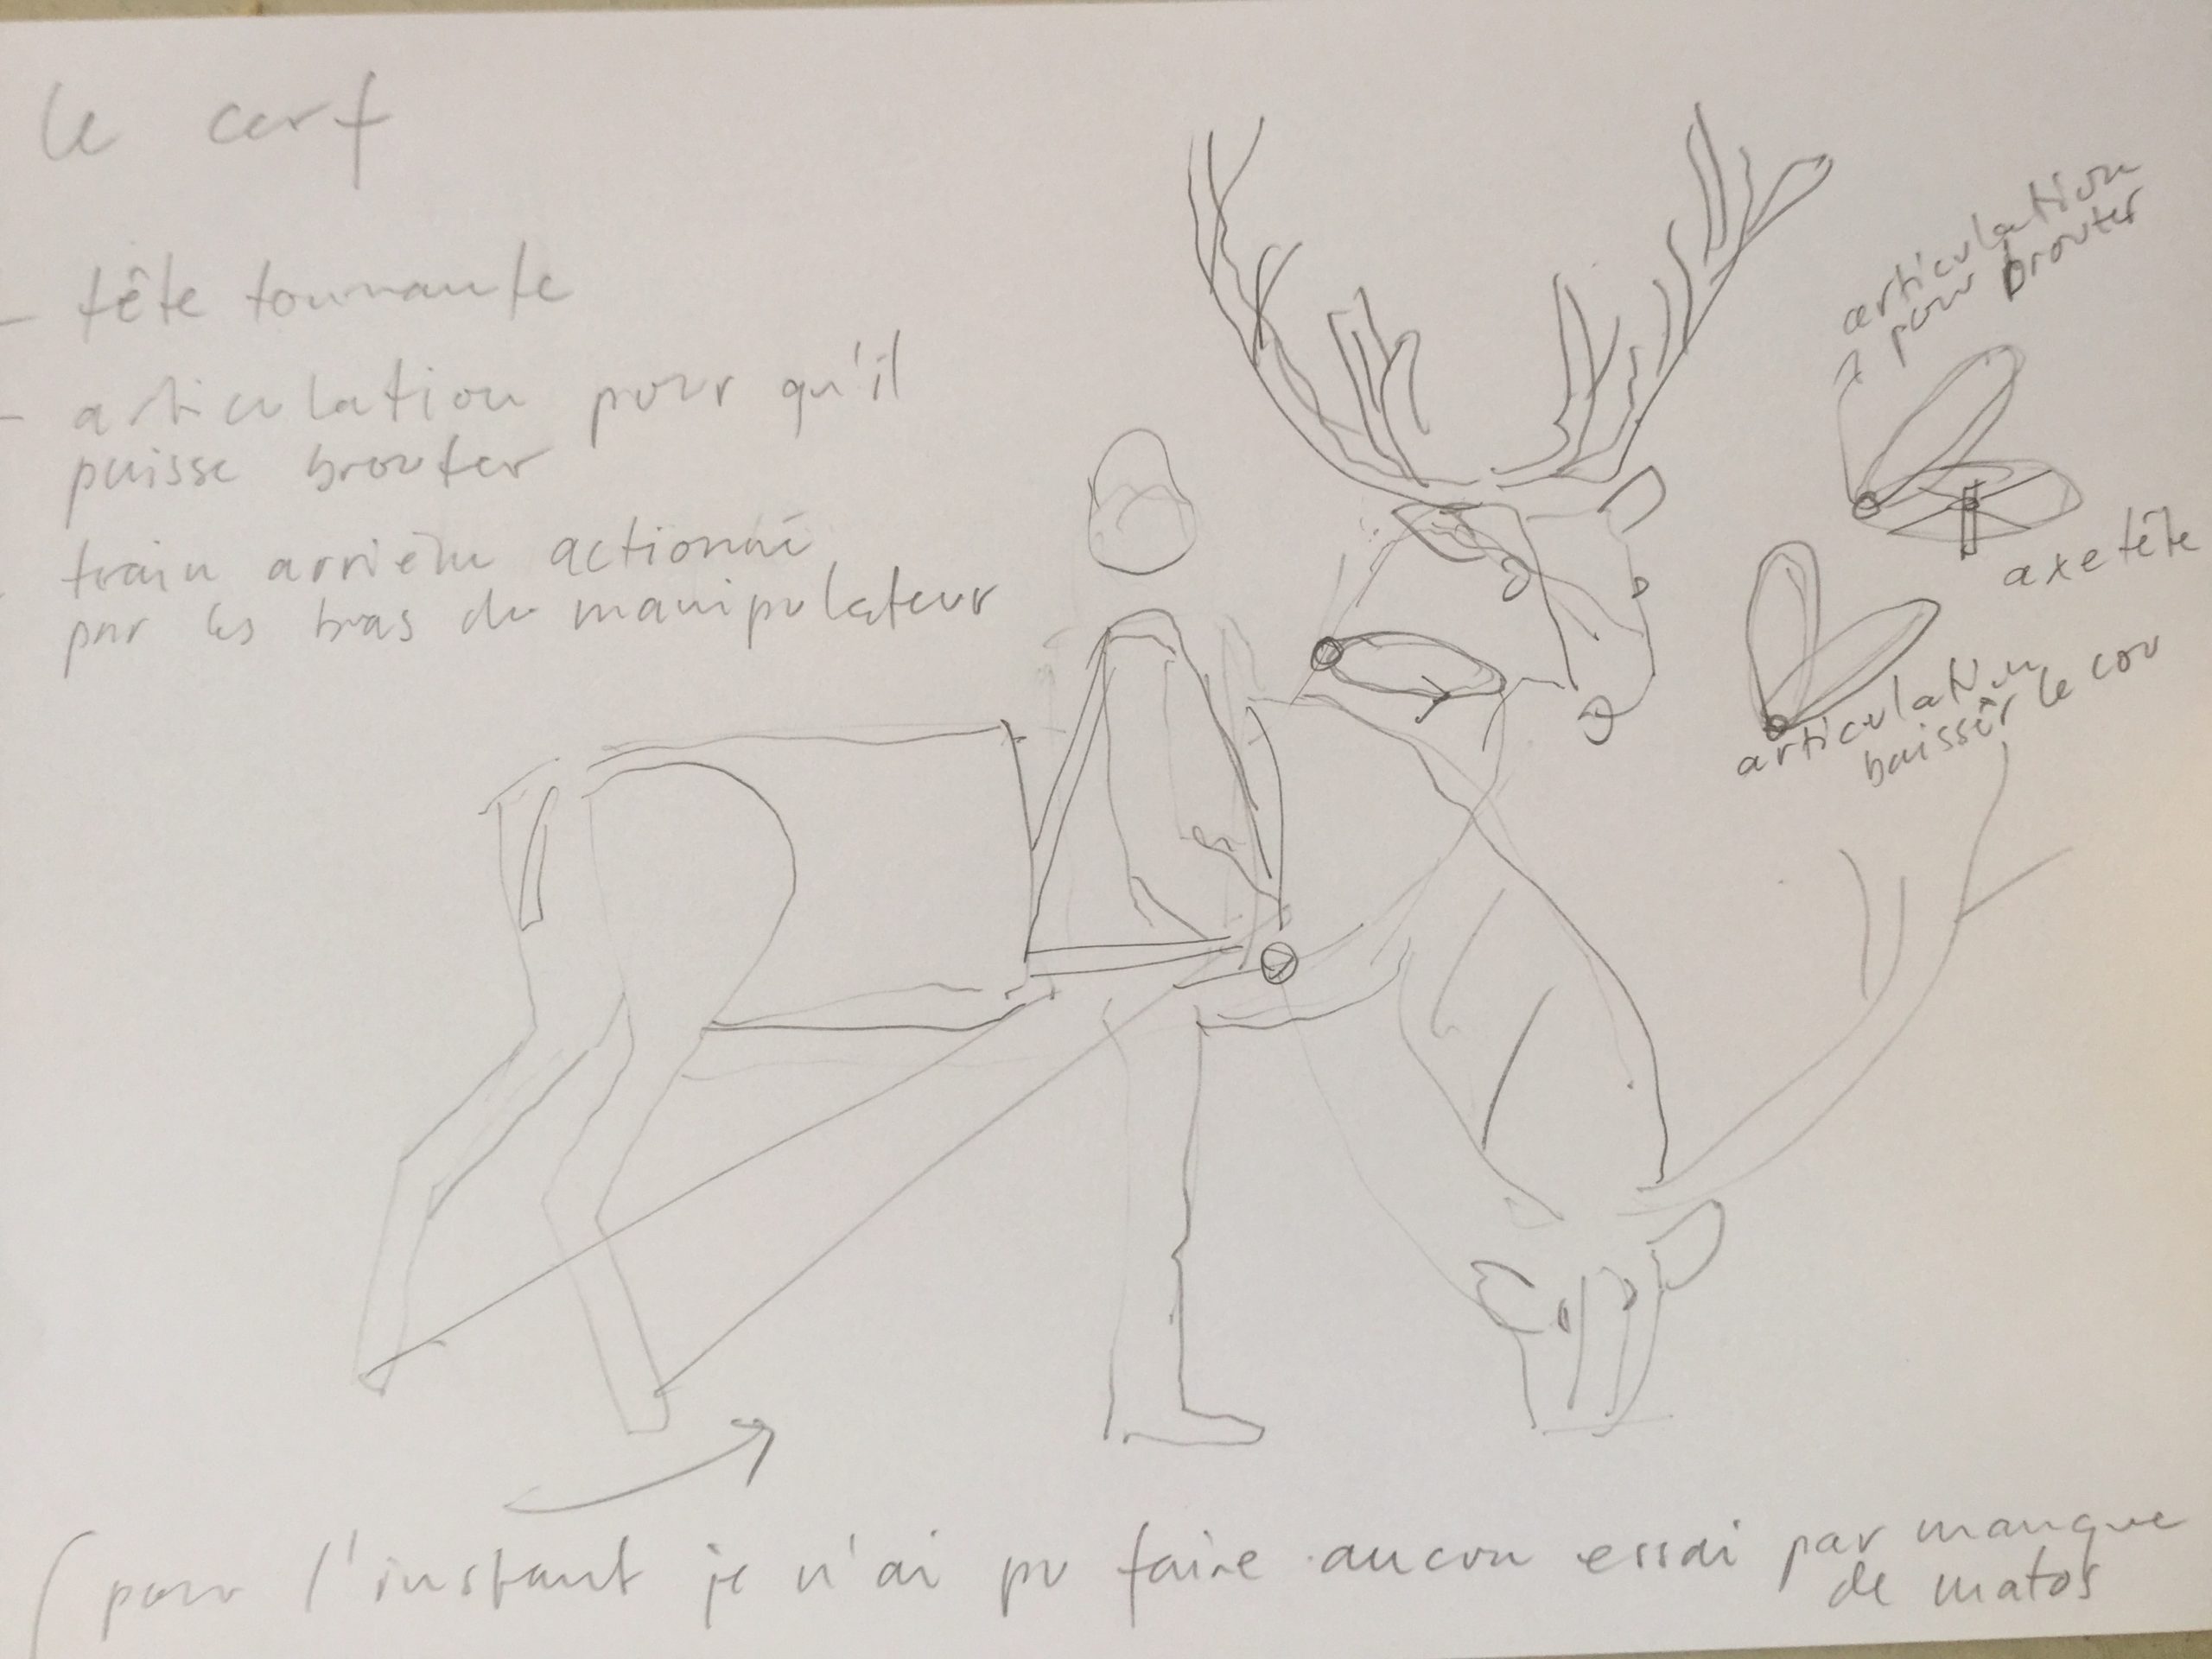 le cerf
- tête tournante
- articulation pour qu'il
puisse brouter
- train arrière actionné
par les bras du manipulateur
articulation
pour brouter
axe tête
articulation
baisser le cou
(pour l'instant je n'ai pu faire aucun essai par manque
de matos